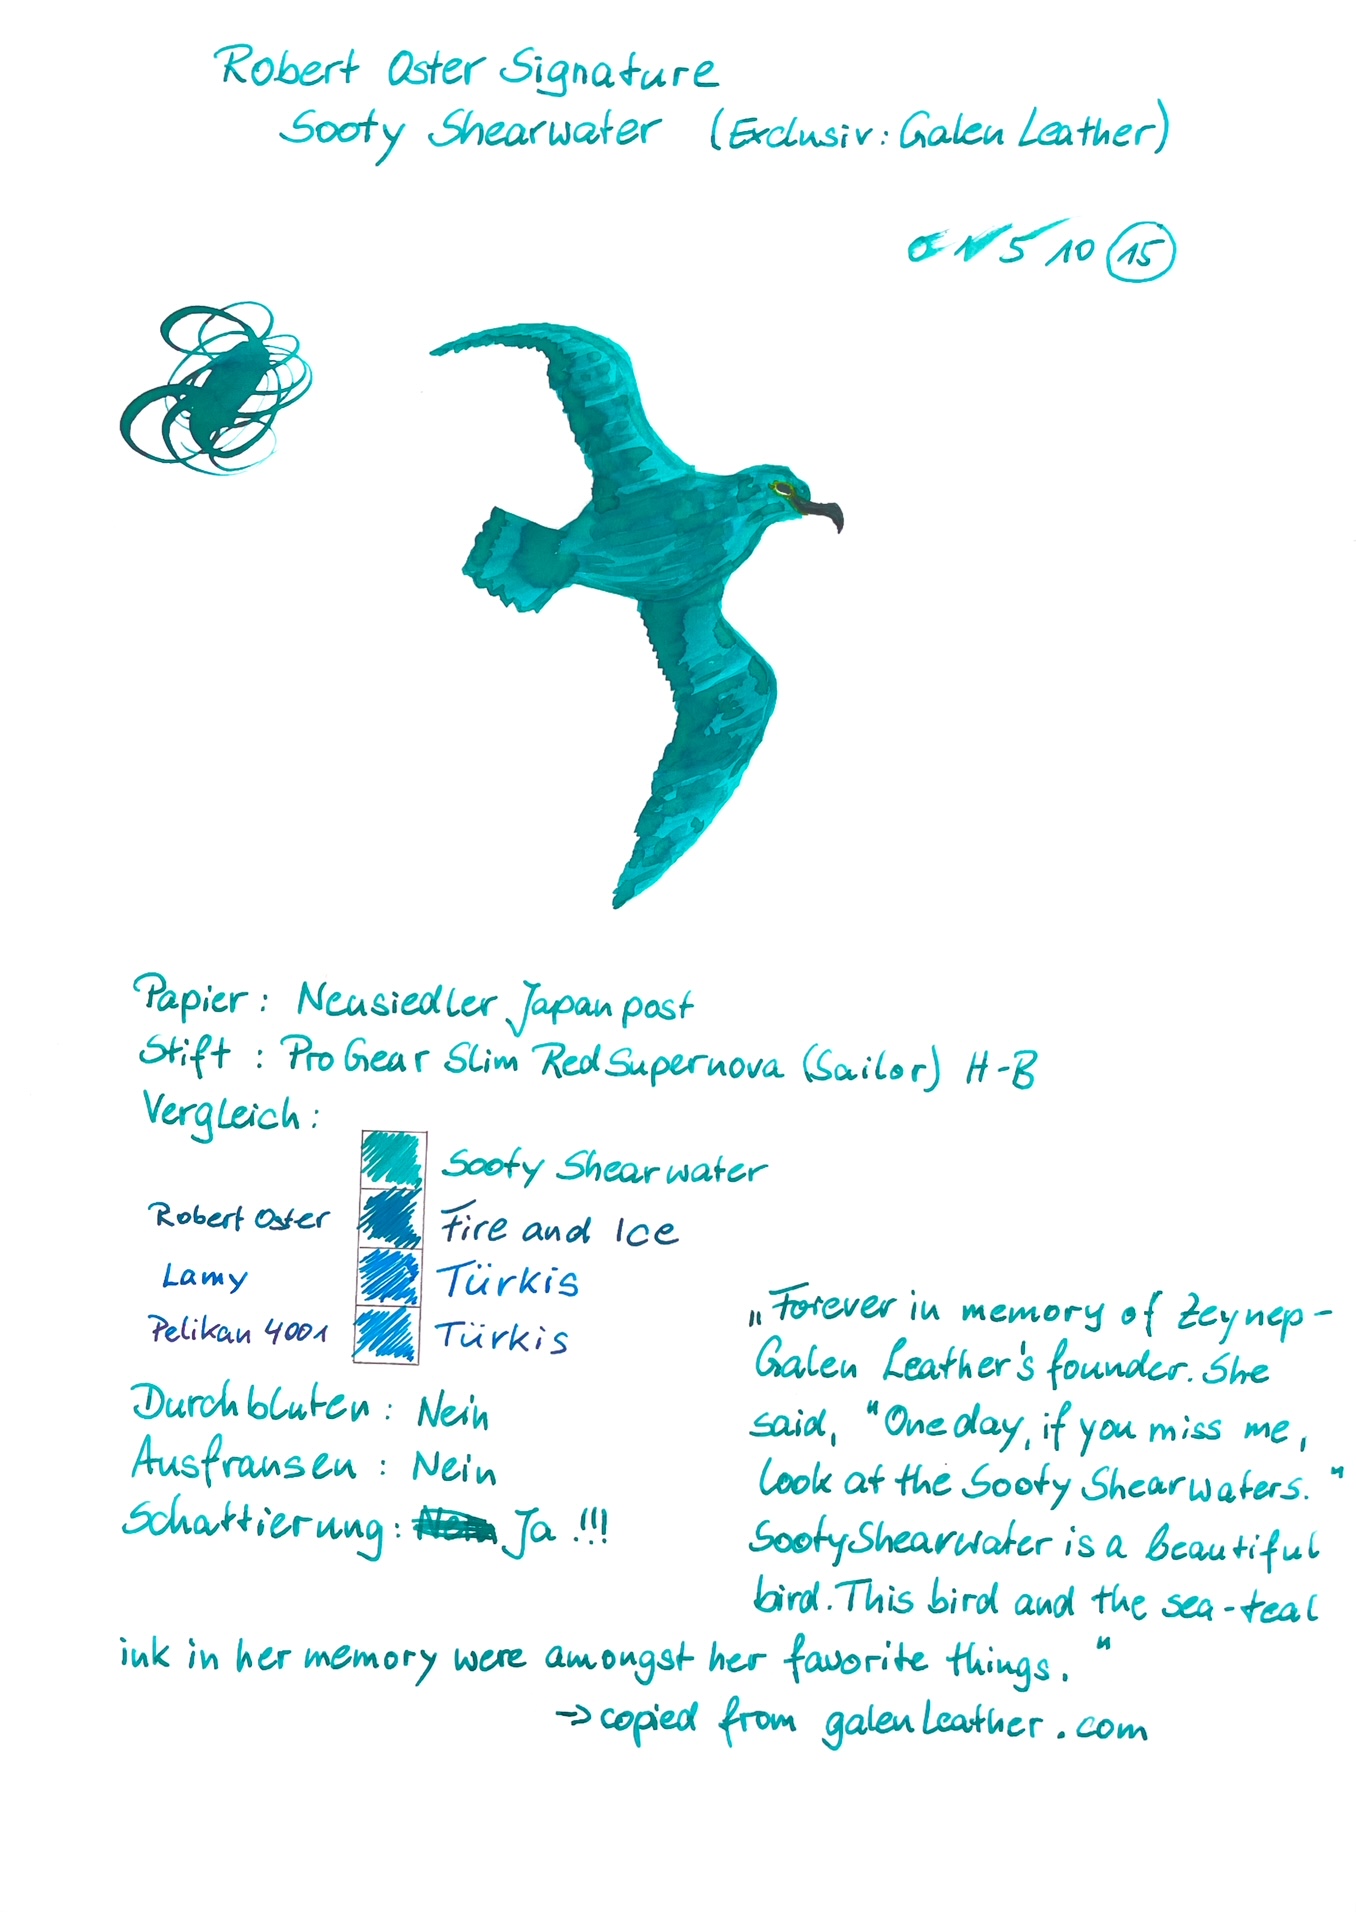 Robert Oster Signature
Sooty Shearwater (Exclusiv: Galen Leather)
0 1 5 10 15
Papier: Neusiedler Japanpost
Stift: Pro Gear Slim Red Supernova (Sailor) H-B
Vergleich:
Sooty Shearwater
Robert Oster Fire and Ice
Lamy Türkis
Pelikan 4001 Türkis
Durchbluten: Nein
Ausfransen: Nein
Schattierung: Nein Ja!!!
„Forever in memory of Zeynep-
Galen Leather's founder. She
said, "One day, if you miss me,
look at the Sooty Shearwaters."
Sooty Shearwater is a beautiful
bird. This bird and the sea-teal
ink in her memory were amongst her favorite things."
→ copied from galenleather.com